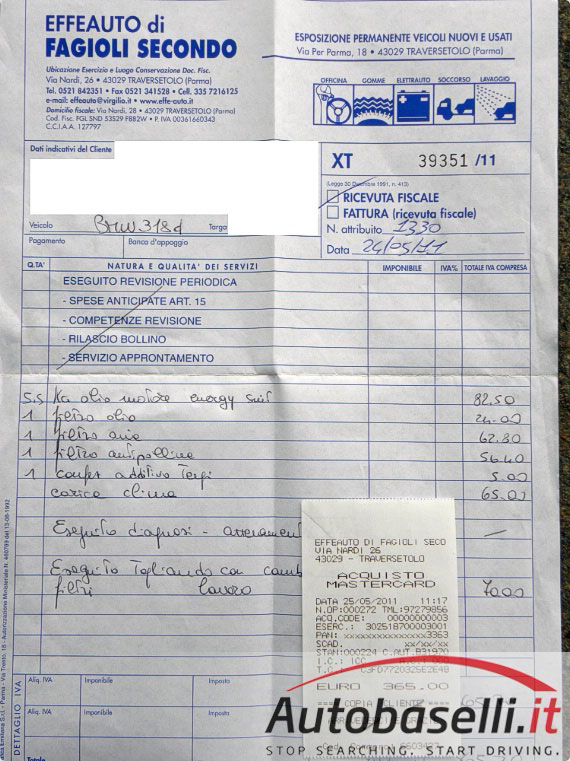 EFFEAUTO di
FAGIOLI SECONDO
Ubicazione Esercizio e Luogo Conservazione Doc. Fisc.
Via Nardi, 26 • 43029 TRAVERSETOLO (Parma)
Tel. 0521 842351 • Fax 0521 341528 • Cell. 335 7216125
e-mail: effeauto@virgilio.it • www.effe-auto.it
Domicilio fiscale: Via Nardi, 28 • 43029 TRAVERSETOLO (Parma)
Cod. Fisc. FGL SND 53S29 F882W • P. IVA 00361660343
C.C.I.A.A. 127797
ESPOSIZIONE PERMANENTE VEICOLI NUOVI E USATI
Via Per Parma, 18 • 43029 TRAVERSETOLO (Parma)
OFFICINA GOMME ELETTRAUTO SOCCORSO LAVAGGIO
Dati indicativi del Cliente
XT 39351 /11
(Legge 30 Dicembre 1991, n. 413)
RICEVUTA FISCALE
FATTURA (ricevuta fiscale)
N. attribuito 1330
Data 24/05/11
Veicolo BMW 318d Targa
Pagamento Banca d'appoggio
Q.TA' NATURA E QUALITA' DEI SERVIZI IMPONIBILE IVA% TOTALE IVA COMPRESA
ESEGUITO REVISIONE PERIODICA
- SPESE ANTICIPATE ART. 15
- COMPETENZE REVISIONE
- RILASCIO BOLLINO
- SERVIZIO APPRONTAMENTO
5.5 Kg olio motore energy 82.50
1 filtro olio 24.00
1 filtro aria 62.80
1 filtro antipolline 56.40
1 additivo Tergi 5.00
carica clima 65.00
Eseguito diagnosi -
Eseguito Tagliando con
filtri lavoro 70.00
EFFEAUTO DI FAGIOLI SECO
VIA NARDI 26
43029 - TRAVERSETOLO
ACQUISTO
MASTERCARD
DATA 25/05/2011 11:17
N.OP:000272 TML:97279856
ACQ.CODE: 00000000003
ESERC.: 302518700003001
PAN: xxxxxxxxxxxxxxx3363
SCAD. xx/xx/xx
STAN:000224 C.AUT.B31920
T.C.: C3FD7720325E2E48
EURO 365.00
COPIA CLIENTE
Aliq. IVA Imponibile Imposta Aliq. IVA Imponibile
Aliq. IVA Imponibile Imposta Aliq. IVA Imponibile
DETTAGLIO IVA
Totale
Autobaselli.it
STOP SEARCHING. START DRIVING.